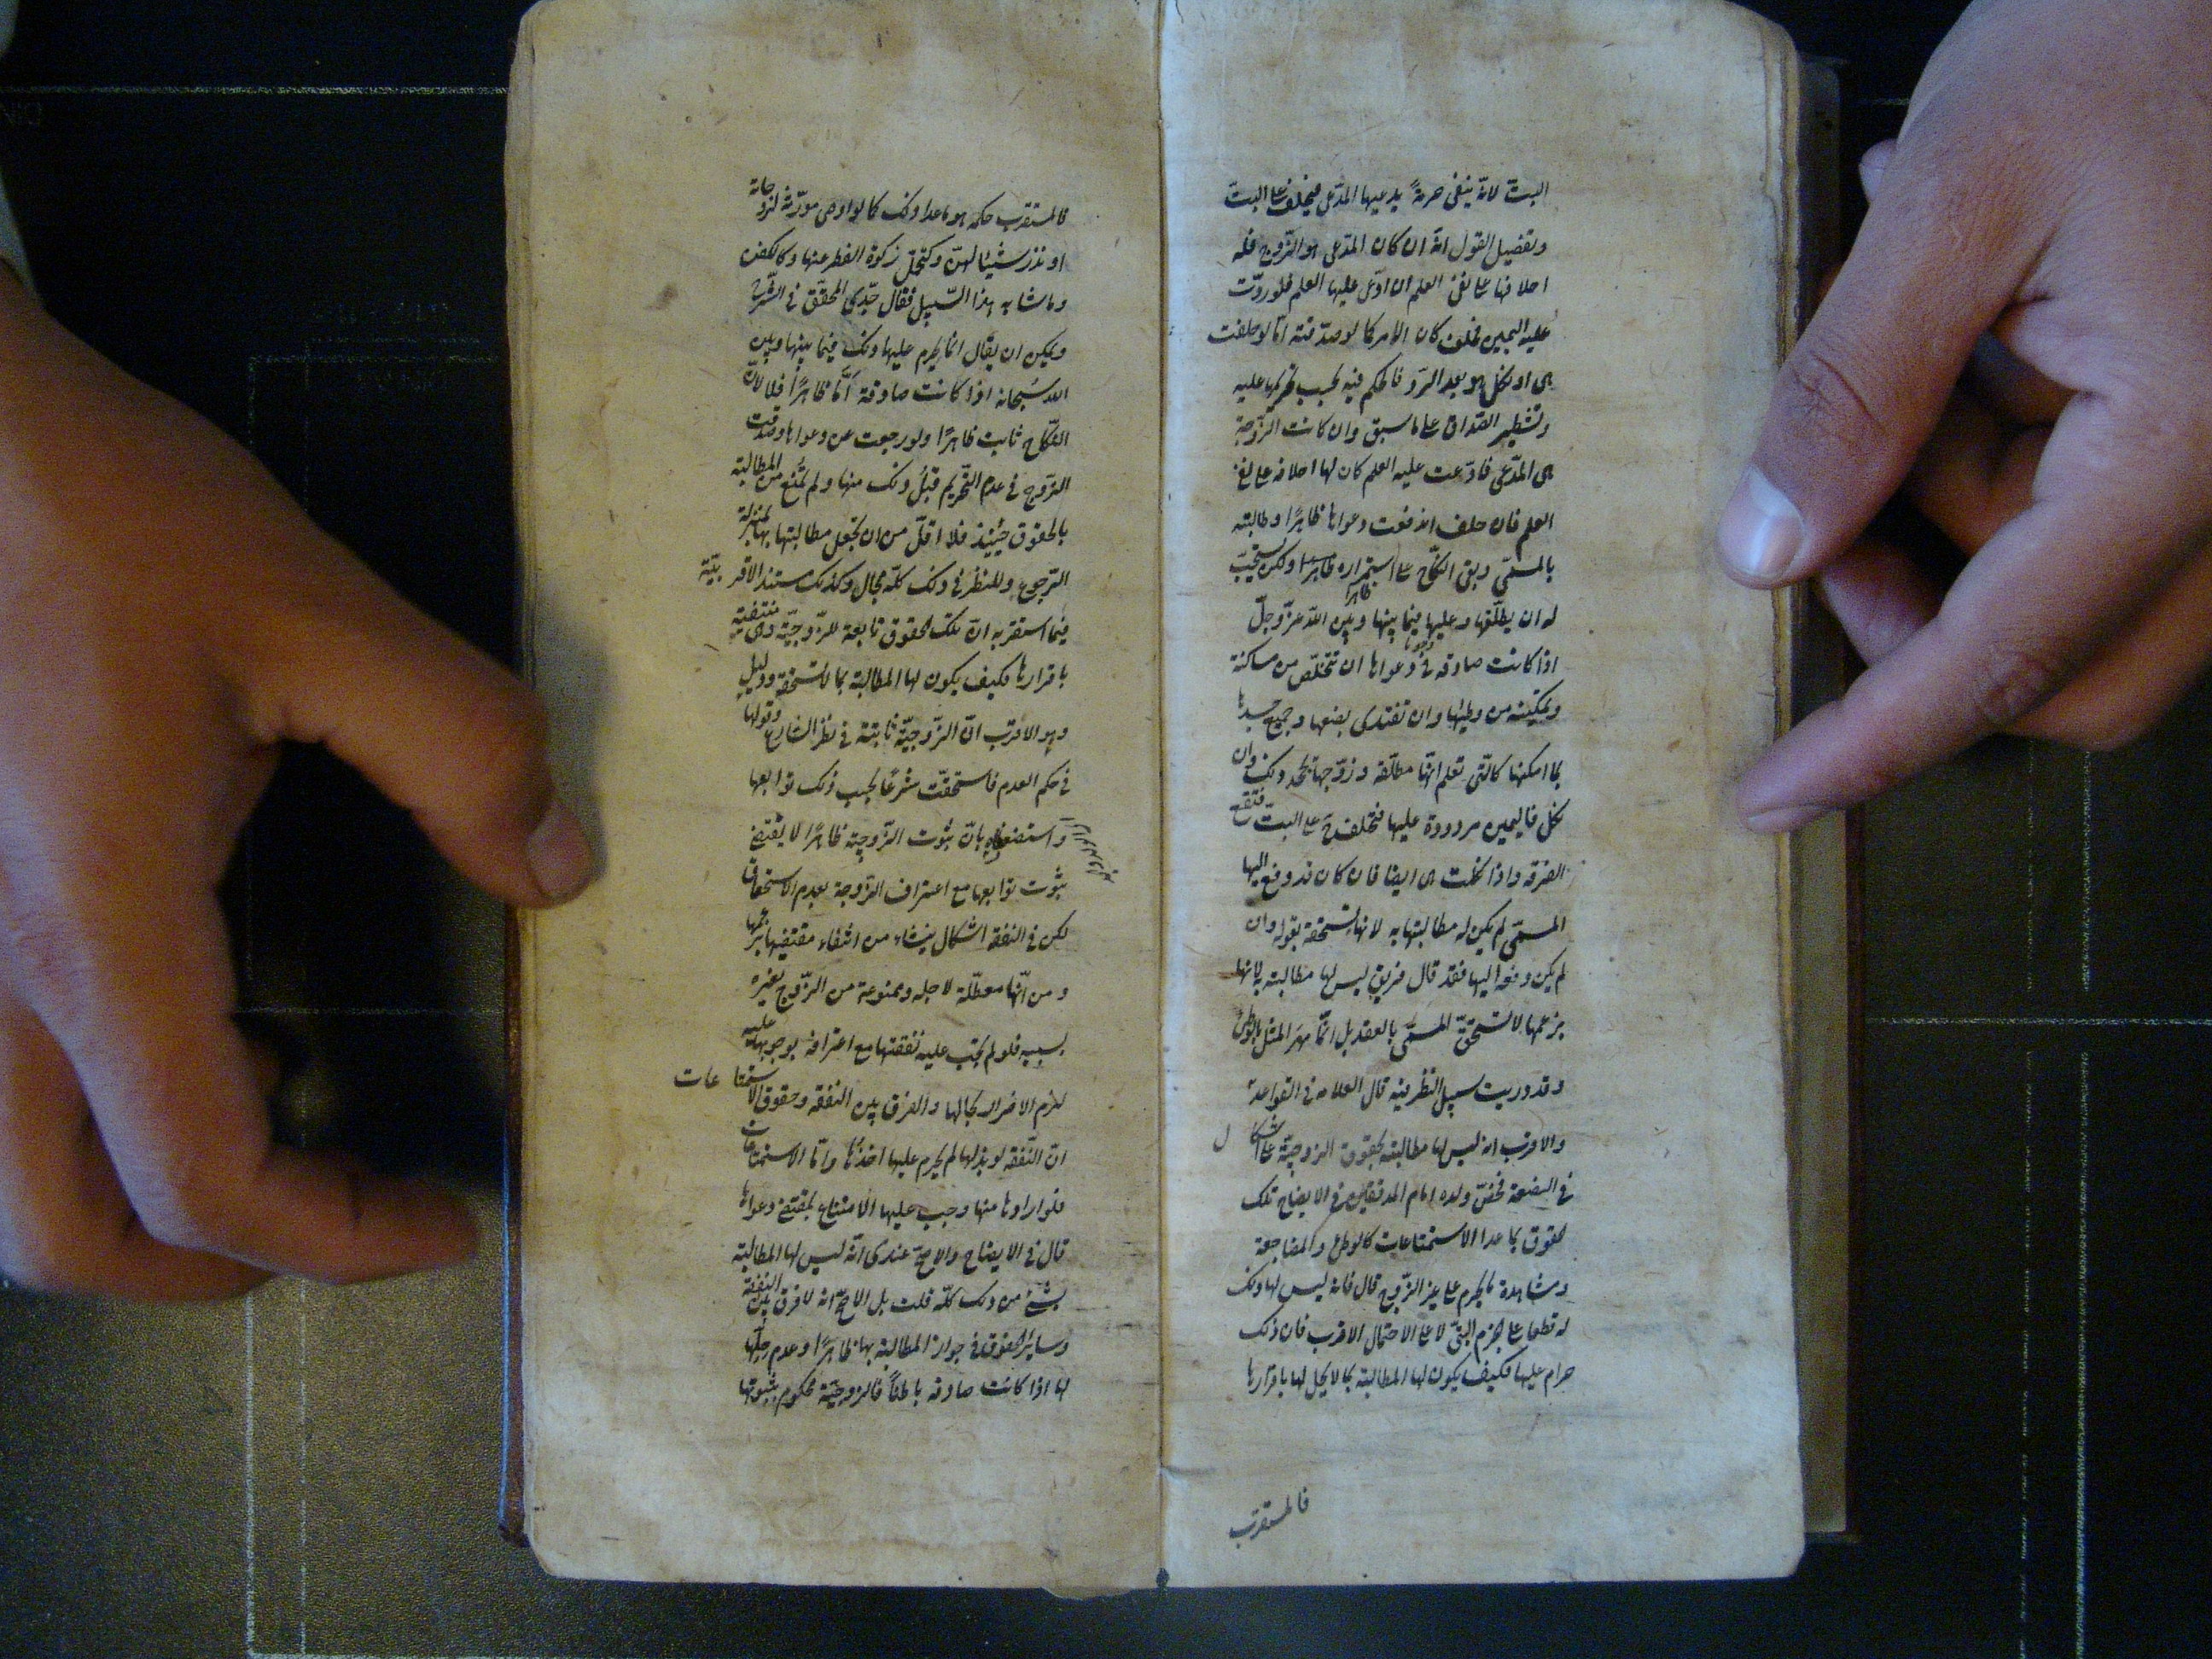 البتّ لانّه ينفى حرمةً يدعيها المدّعى فيحلف على البتّ
وتفصيل القول انّه ان كان المدّعى هو الزّوج فله
احلافها على نفى العلم ان ادّعى عليها العلم فلو ردّت
عليه اليمين فحلف كان الامر كما لو صدّقته امّا لو حلفت
هى او نكل هو بعد الرّد فالحكم فيه بحسب تحريمها عليه
وتشطير الصّداق على ما سبق وان كانت الزّوجة
هى المدّعى فادّعت عليه العلم كان لها احلافه على نفى
العلم فان حلف اندفعت دعواها ظاهرًا وطالبته
بالمسمّى وبقى النكّاح على استمراره ظاهرًا ولكن يستحبّ
له ان يطلّقها وعليها فيما بينها وبين اللّه عزّ وجلّ
اذا كانت صادقه فى دعواها ان تتخلّص من مساكنة
وتمكينه من وطيها وان تفتدى بضعها وجميع جسدها
بما امكنها كالّتى تعلم انّها مطلّقه وزوّجها يجحد ذلك وان
نكل فاليمين مردودة عليها فتحلف هى على البتّ فتقع
الفرقه واذا نكلت هى ايضا فان كان قد دفع اليها
المسمّى لم يكن له مطالبتها به لانها تستحقه بقوله وان
لم يكن دفعه اليها فقد قال فريق ليس لها مطالبته لانها
بزعمها لا تستحقّ المسمّى بالعقد بل انّما مهر المثل بالوطئ
وقد دريت سبيل النظر فيه قال العلامه فى القواعد
والاقرب انه ليس لها مطالبته بحقوق الزوجيّة على اشكال
فى البضعة فخصّ ولده امام المدققين فى الايضاح تلك
الحقوق بما عدا الاستمتاعات كالوطئ والمضاجعة
ومشاهدة ما يحرم على غير الزّوج قال فانه ليس لها ذلك
له قطعا على الجزم البتّى لا على الاحتمال الاقرب فان ذلك
حرام عليها فكيف يكون لها المطالبة بما لا يحل لها باقرارها
فالمستقرب
فالمستقرب حكمه هو ما عدا ذلك كما لو اوصى مورّثه لزوجاته
او نذر شيئا لهنّ وكتحمّل زكوة الفطر عنها وكالكفن
وما شابه هذا السّبيل فقال جدّى المحقّق فى الشّرح
ويمكن ان يقال انّما يحرم عليها ذلك فيما بينها وبين
اللّه سُبحانه اذا كانت صادقة امّا ظاهرًا فلا لانّ
النّكاح ثابت ظاهرًا ولو رجعت عن دعواها وصدّقت
الزّوج فى عدم التّحريم قبل ذلك منها ولم تُمنع من المطالبة
بالحقوق حينئذ فلا اقلّ من ان تجعل مطالبتها بها بمنزلة
الرّجوع وللنظر فى ذلك كلّه مجال وكذلك مستند الاقربيّة
فيما استقربه انّ تلك الحقوق تابعة للزّوجيّة وهى منتفية
باقرارها فكيف يكون لها المطالبة بما لا تستحقه ودليل
وهو الاقرب انّ الزّوجيّة ثابتة فى نظر الشارع وقولها
فى حكم العدم فاستحقت شرعًا بحسب ذلك توابعها
واستضعفاه بانّ ثبوت الزّوجية ظاهرًا لا يقتضى
ثبوت توابعها مع اعتراف الزّوجة بعدم الاستحقاق
لكن فى النفقه اشكال ينشاء من انتفاء مقتضيها بزعمها
ومن انّها معطّلة لاجله وممنوعة من التّزوّج بغيره
بسببه فلو لم تجب عليه نفقتها مع اعترافه بوجوبها عليه
للزم الاضرار بحالها والفرق بين النفقه وحقوق الاستمتاعات
انّ النّفقه لو بذلها لم يحرم عليها اخذها وامّا الاستمتاعات
فلو ارادها منها وجب عليها الامتناع بمقتضى دعواها
قال فى الايضاح والاصحّ عندى انّه ليس لها المطالبة
بشئ من ذلك كلّه قلت بل الاصحّ انه لا فرق بين النفقة
وسائر الحقوق فى جواز المطالبة بها ظاهرًا وعدم حلّها
لها اذا كانت صادقه باطنًا فالزوجيّة محكوم بثبوتها